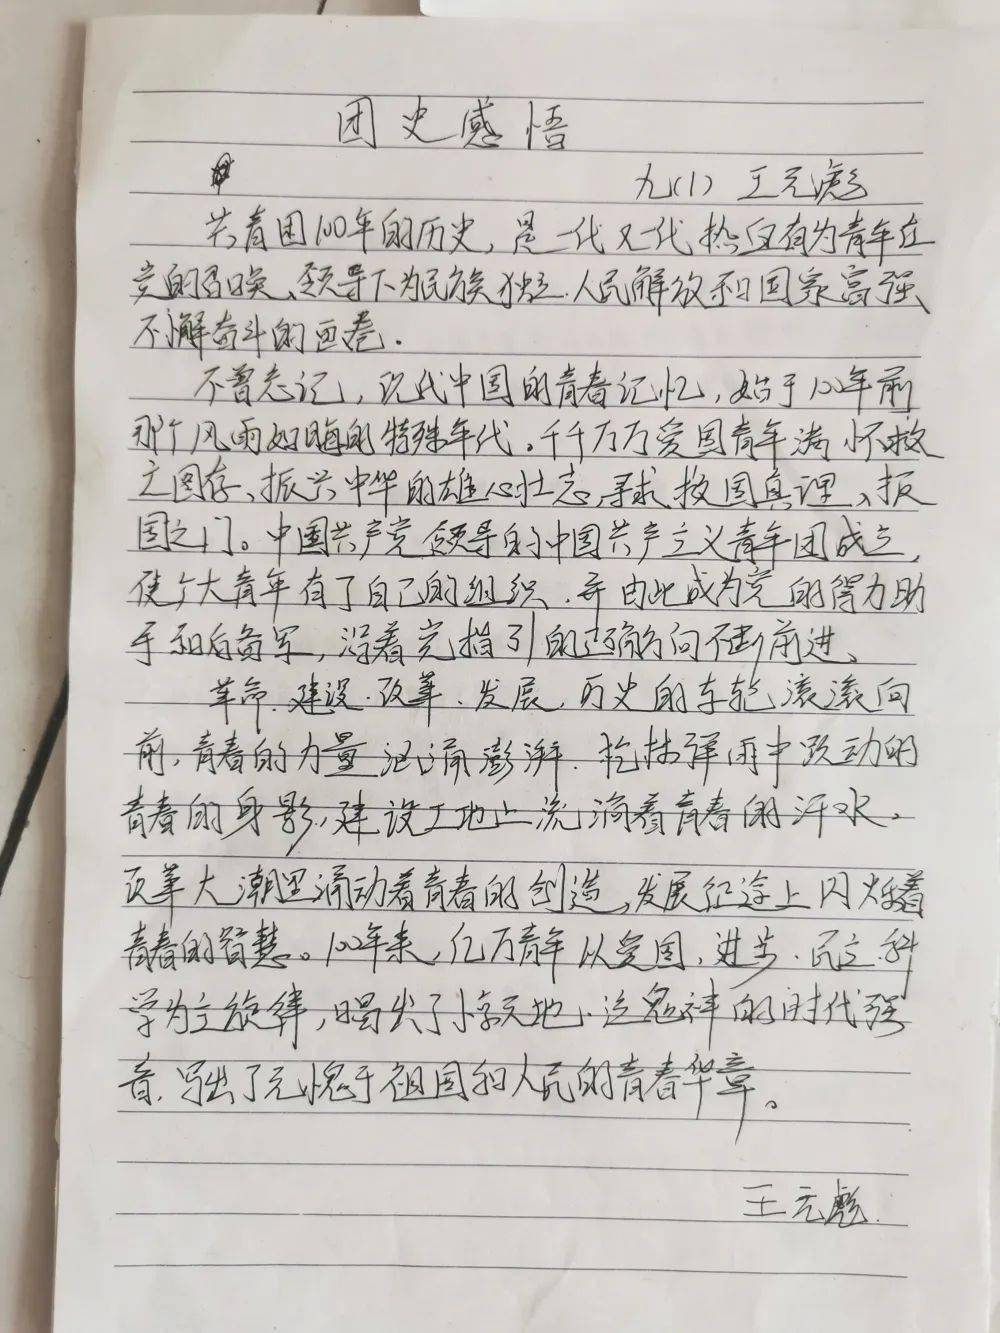 团史感悟
九(1) 王元彪
共青团100年的历史,是一代又一代热血有为青年在
党的召唤、领导下为民族独立、人民解放和国家富强
不懈奋斗的画卷.
不曾忘记,现代中国的青春记忆,始于100年前
那个风雨如晦的特殊年代。千千万万爱国青年满怀救
亡图存、振兴中华的雄心壮志,寻求救国真理、报
国之门。中国共产党领导的中国共产主义青年团成立,
使广大青年有了自己的组织,并由此成为党的得力助
手和后备军,沿着党指引的正确方向不断前进、
革命、建设、改革、发展,历史的车轮滚滚向
前,青春的力量汹涌澎湃.枪林弹雨中跃动的
青春的身影,建设工地上流淌着青春的汗水,
改革大潮里涌动着青春的创造,发展征途上闪烁着
青春的智慧。100年来,亿万青年以爱国,进步、民主、科
学为主旋律,唱出了惊天地、泣鬼神的时代强
音,写出了无愧于祖国和人民的青春华章。
王元彪.